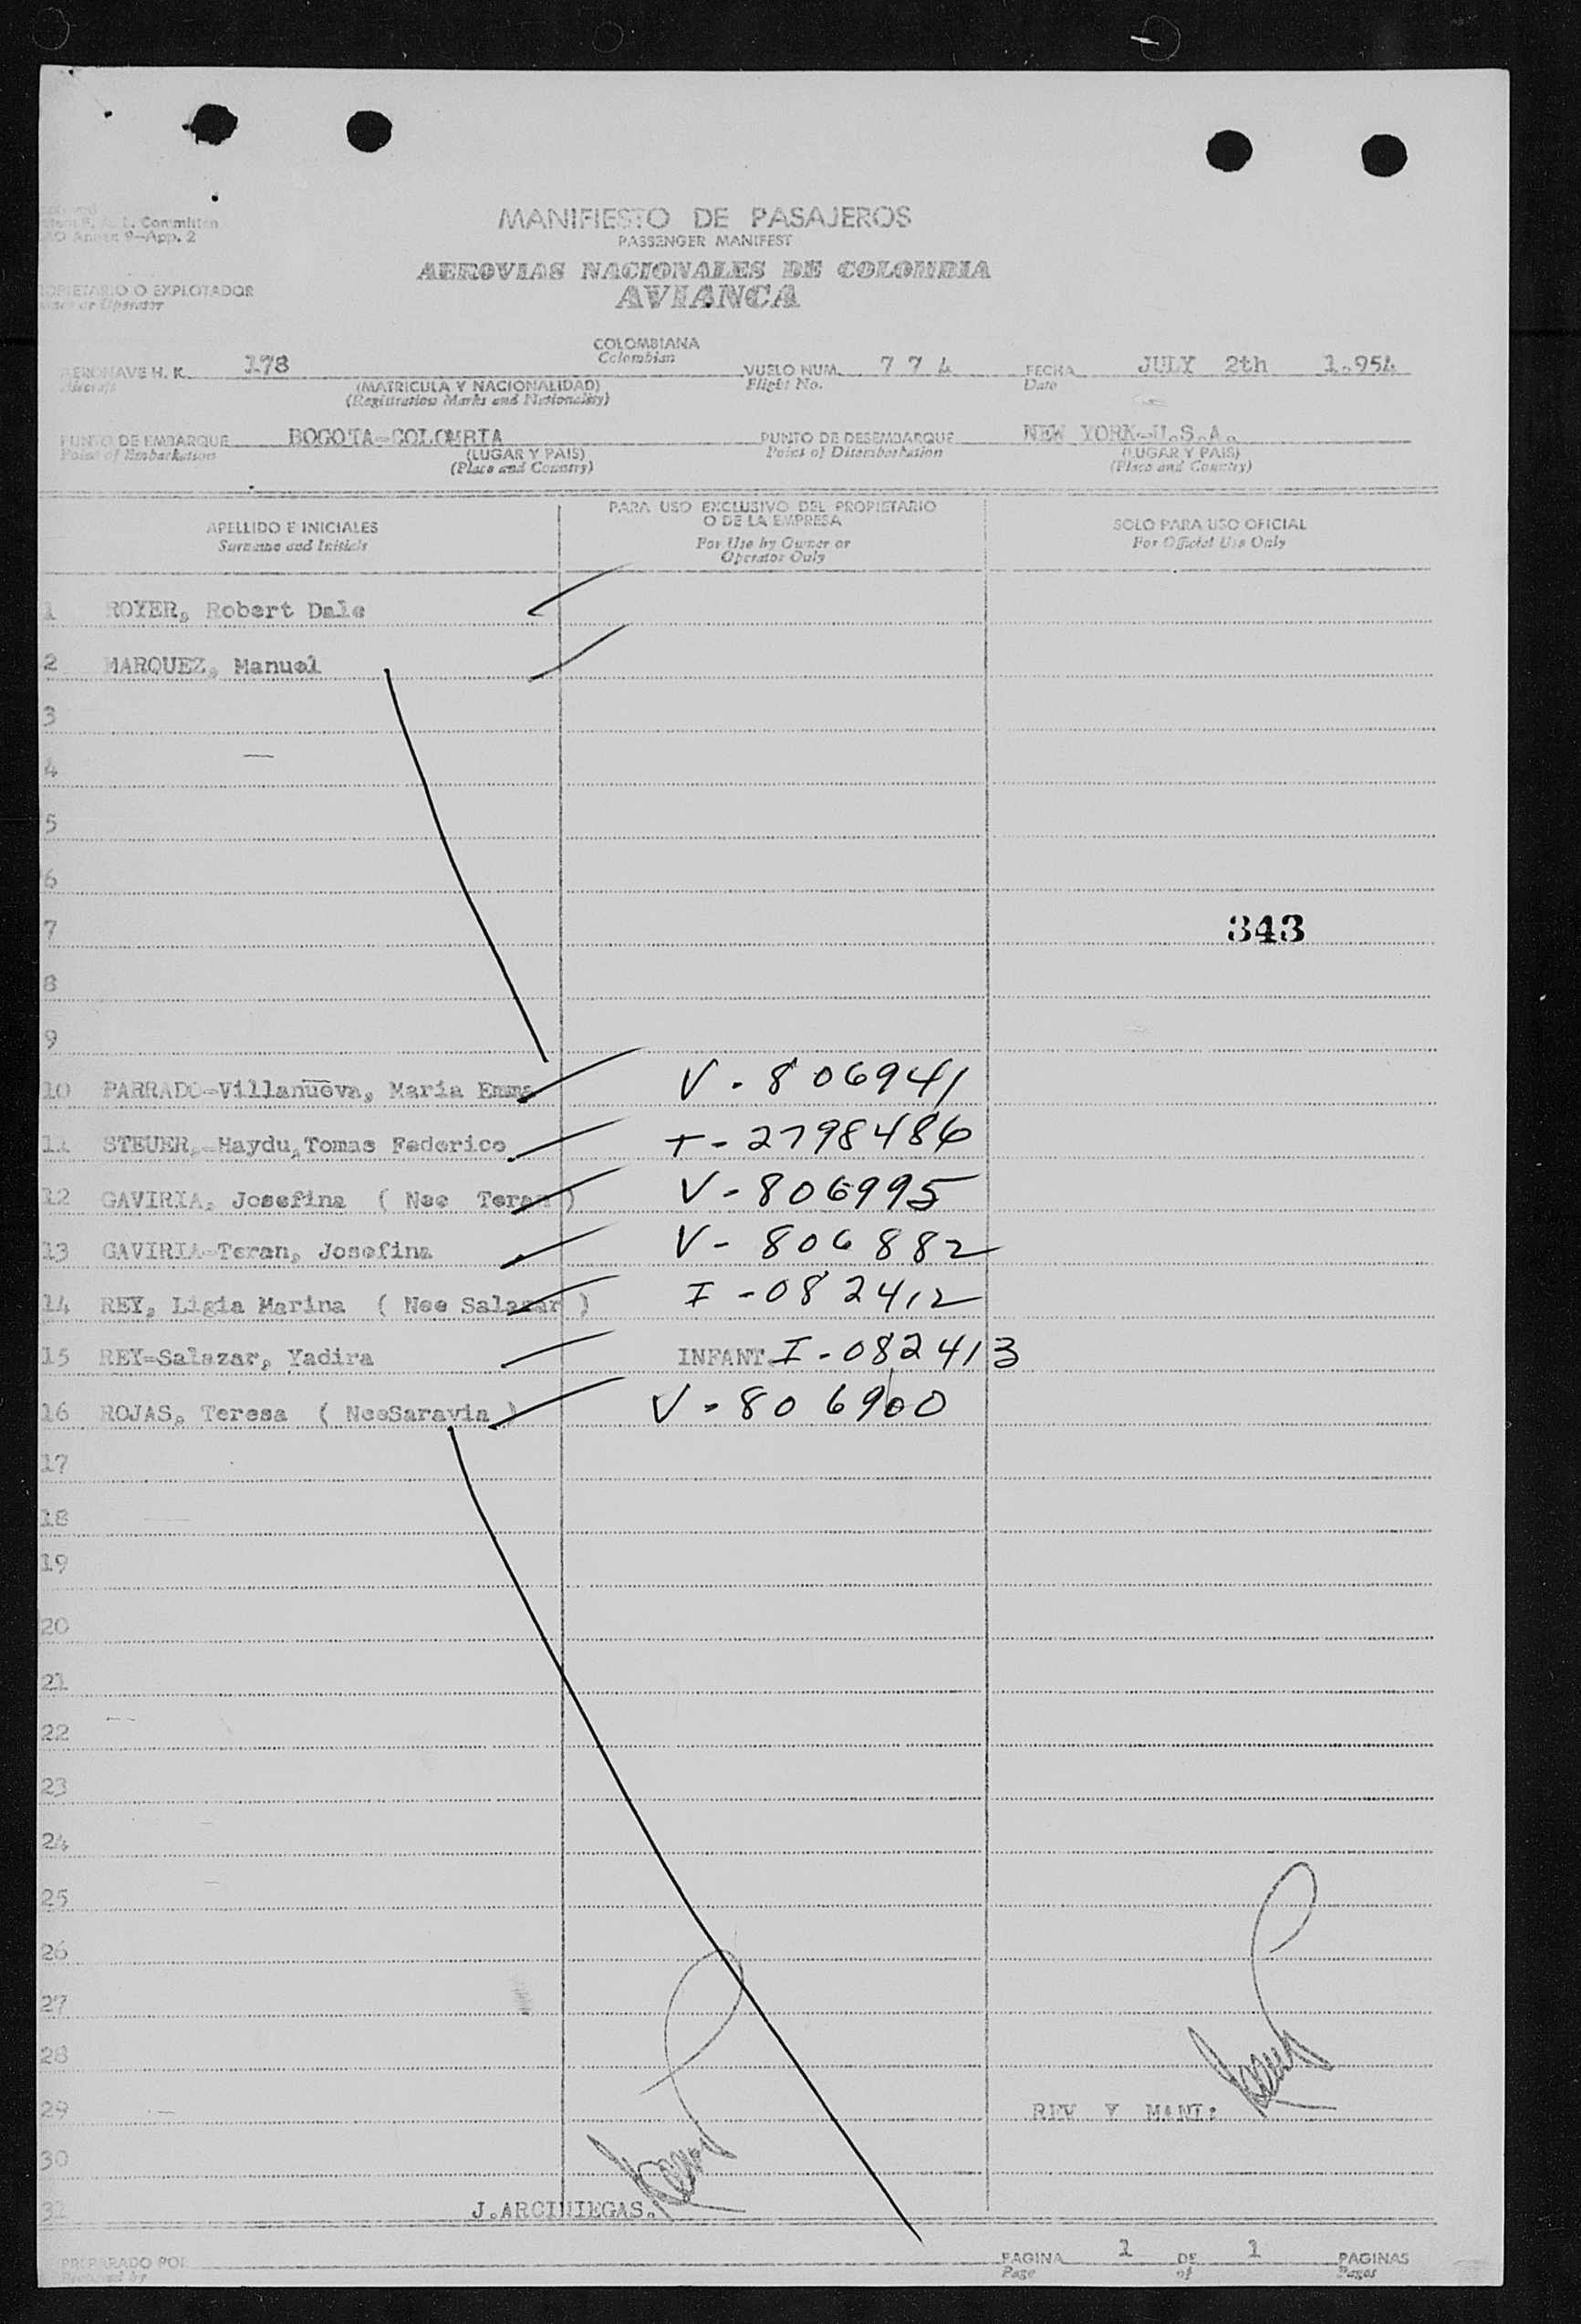 L. Committee
Annex 9-App. 2
MANIFIESTO DE PASAJEROS
PASSENGER MANIFEST
AEROVIAS NACIONALES DE COLOMBIA
AVIANCA
O EXPLOTADOR
or Operator
COLOMBIANA
Colombian
AERONAVE H. K. 178 VUELO NUM. 7 7 4 FECHA JULY 2th 1.954
Aircraft (MATRICULA Y NACIONALIDAD) Flight No. Date
(Registration Marks and Nationality)
PUNTO DE EMBARQUE BOGOTA-COLOMBIA PUNTO DE DESEMBARQUE NEW YORK-U.S.A.
Point of Embarkation (LUGAR Y PAIS) Point of Disembarkation (LUGAR Y PAIS)
(Place and Country) (Place and Country)
APELLIDO E INICIALES PARA USO EXCLUSIVO DEL PROPIETARIO O DE LA EMPRESA SOLO PARA USO OFICIAL
Surname and Initials For Use by Owner or Operator Only For Official Use Only
1 ROYER, Robert Dale
2 MARQUEZ, Manuel
3
4
5
6
7 343
8
9
10 PARRADO-Villanueva, Maria Emma V-806941
11 STEUER,-Haydu,Tomas Federico T-2798486
12 GAVIRIA, Josefina ( Nee Teran ) V-806995
13 GAVIRIA-Teran, Josefina V-806882
14 REY, Ligia Marina ( Nee Salazar ) I-082412
15 REY-Salazar, Yadira INFANT. I-082413
16 ROJAS, Teresa ( NeeSaravia ) V-806900
17
18
19
20
21
22
23
24
25
26
27
28
29 REV Y MANT:
30
J.ARCINIEGAS.
PREPARADO POR PAGINA 1 DE 1 PAGINAS
Prepared by Page of Pages